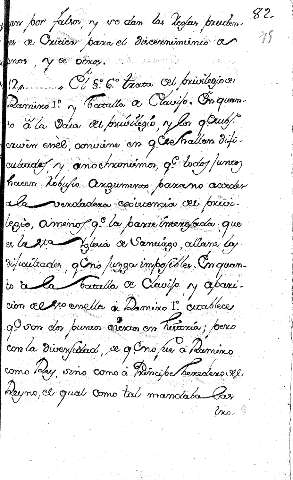 82.
por falsos, y se dan las Reglas pruden-
es de Critica para el discernimiento de
unos, y de otros.
El §. 6º trata del privilegio de
Ramiro 1º y Batalla de Clavijo. En quan-
to à la Data del privilegio y los q.e subs-
criven en el, conviene en q.e se hallan difi-
cultades y anochronismos, q.e todos juntos
hacen robusto argumento para no acceder
a la verdadera existencia del privi-
legio, a menos q.e la parte interesada que
es la Sta Iglesia de Santiago, allane las
dificultades, q.e no juzga imposibles. En quan-
to a la Batalla de Clavijo y apari-
cion del Sto en ella à Ramiro 1º establece
q.e son dos puntos ciertos en historia; pero
con la diversidad, de q.e no fue à Ramiro
como Rey, sino como à Principe heredero del
Reyno, el qual como tal mandaba las
tro.